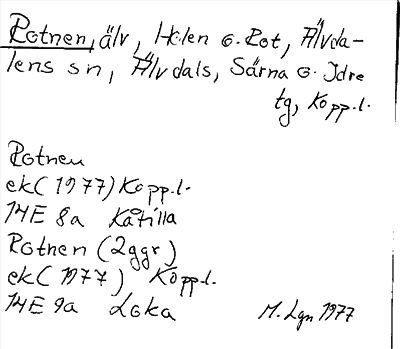 Rotnen, älv, Holen o. Rot, Älvda-
lens sn, Älvdals, Särna o. Idre
tg, Kopp.l.
Rotnen
ek (1977) Kopp.l.
14E 8a Kåtilla
Rotnen (2ggr)
ek (1977) Kopp.l.
14E 9a Loka
M. Lgn 1977